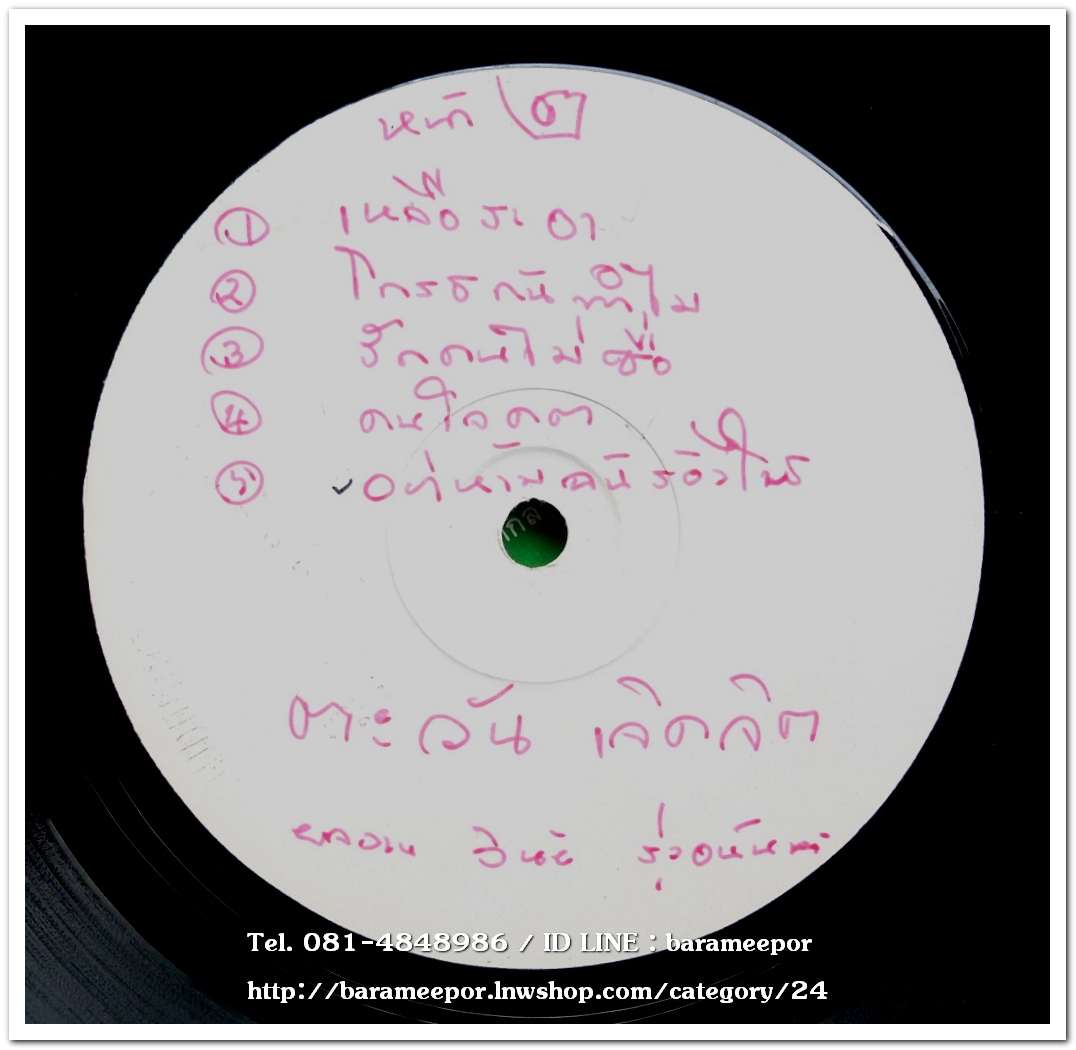 หน้า ๒
① เหลือระอา
② โกรธกันทำไม
③ รักคนไม่ซื่อ
④ คนใจคด
⑤ อย่าห้ามฉันร้องไห้
ตะวัน
วินัย รุ่งอนันต์
Tel. 081-4848986 / ID LINE : barameepor
http://barameepor.lnwshop.com/category/24